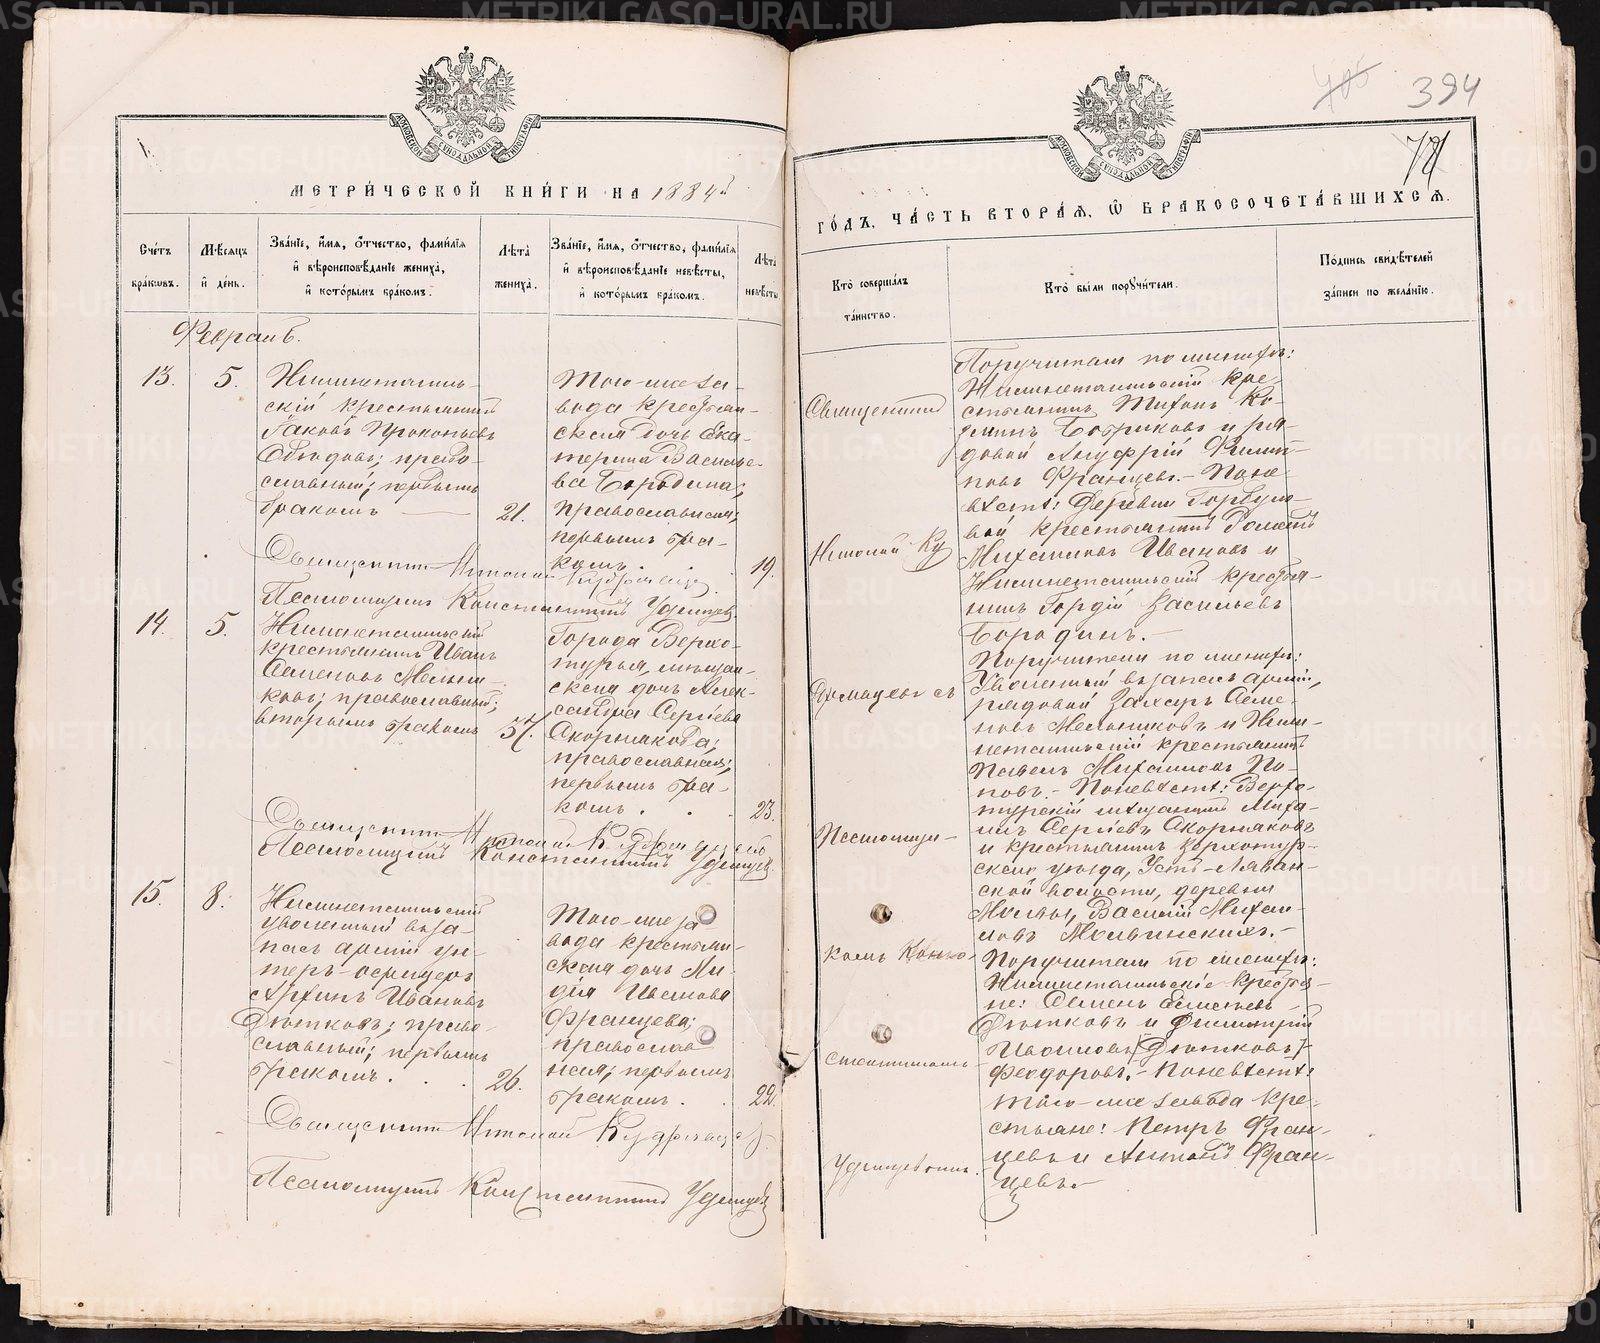 МЕТРИ́ЧЕСКОЙ КНИ́ГИ НА 1884й
Сче́тъ бра́ковъ.
Мѣ́сяцъ и҆ де́нь.
Зва́нїе, и҆́мя, ѻ҆́тчество, фами́лїя и҆ вѣроисповѣ́данїе жениха̀, и҆ кото́рымъ бра́комъ.
Лѣ́та жениха̀.
Зва́нїе, и҆́мя, ѻ҆́тчество, фами́лїя и҆ вѣроисповѣ́данїе невѣ́сты, и҆ кото́рымъ бра́комъ.
Лѣ́та невѣ́сты.
Февраль.
13.
5.
Нижнетагиль-
скій крестьянинъ
Іаковъ Прокопьевъ
право-
славный; первымъ
бракомъ
21.
Того-же за-
вода крестьян-
ская дочь Ека-
терина Василье-
ва Бородина;
православная;
первымъ бра-
комъ.
19.
Священникъ
Псаломщикъ Константинъ Удинцевъ.
14.
5.
Нижнетагильскій
крестьянинъ Иванъ
Семеновъ Мельни-
ковъ; православный;
вторымъ бракомъ
37.
Города Верхо-
турья, мѣщан-
ская дочь Алек-
сандра Сергіева
Скорнякова;
православная;
первымъ бра-
комъ.
23.
Священникъ
Псаломщикъ Константинъ Удинцевъ.
15.
8.
Нижнетагильскій
уволенный въ за-
пасъ арміи ун-
теръ-офицеръ
Архипъ Ивановъ
Дютковъ; право-
славный; первымъ
бракомъ.
26.
Того-же за
вода крестьян-
ская дочь Ли-
дія Иванова
Францева;
православ
ная; первымъ
бракомъ.
22.
Священникъ
Псаломщикъ Константинъ Удинцевъ
394
ГО́ДЪ, ЧА́СТЬ ВТОРА́Я, Ѡ҆ БРАКОСОЧЕТА́ВШИХСЯ.
Кто̀ соверша́лъ та́инство.
Кто̀ бы́ли порꙋчи́тели.
По́дпись свидѣ́телей за́писи по жела́нїю.
Священникъ
Николай Ку
Псаломщи-
комъ Конъ-
стантиномъ
Удинцевымъ.
Поручители по женихѣ:
Нижнетагильскій кре-
стьянинъ Тихонъ Ко-
зминъ Бобриковъ и ря-
довой Ануфрій Филип-
повъ Францевъ.- По не
вѣстѣ: Деревни Горбуно-
вой крестьянинъ Романъ
Михаиловъ Ивановъ и
Нижнетагильскій крестья-
нинъ Гордій Васильевъ
Бородинъ.-
Поручители по женихѣ:
Уволенный въ запасъ арміи,
рядовой Захаръ Семе-
новъ Мельниковъ и Ниж-
нетагильскій крестьянинъ
Павелъ Михаиловъ По-
повъ.- По невѣстѣ: Верхо-
турскій мѣщанинъ Миха-
илъ Сергіевъ Скорняковъ
и крестьянинъ Верхотур-
скаго уѣзда,
ской волости, деревни
Василій Михаи-
ловъ Молвинскихъ.-
Поручители по женихѣ:
Нижнетагильскіе крестья-
не: Семенъ
Дютковъ и Филиппъ
Ивановъ (Дютковъ)
Феодоровъ.- По невѣстѣ:
того-же завода кре-
стьяне: Петръ Фран-
цевъ и Антонъ Фран-
цевъ.-